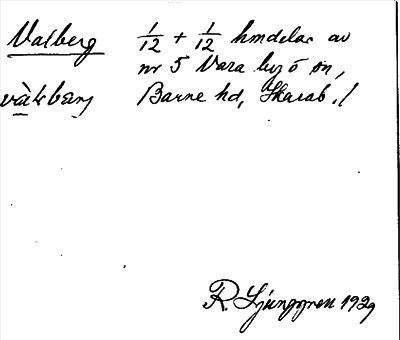 Valberg 1/12 + 1/12 hmdelar av
nr 5 Vara by o sn,
Barne hd, Skarab. l
R. Ljunggren 1929